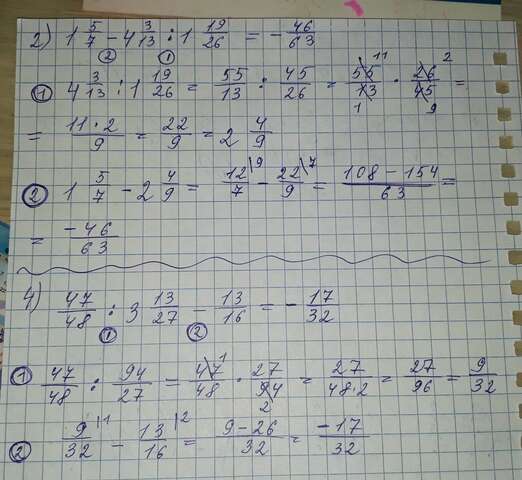 2) 1 5/7 - 4 3/13 : 1 19/26 = - 46/63
② ①
① 4 3/13 : 1 19/26 = 55/13 : 45/26 = 55/13 · 26/45 = 11 2 1 9
= 11·2/9 = 22/9 = 2 4/9
② 1 5/7 - 2 4/9 = 12/7 \9 - 22/9 \7 = 108-154/63 =
= -46/63
4) 47/48 : 3 13/27 - 13/16 = - 17/32
① ②
① 47/48 : 94/27 = 47/48 · 27/94 = 27/48·2 = 27/96 = 9/32 1 2
② 9/32 |1 - 13/16 |2 = 9-26/32 = -17/32